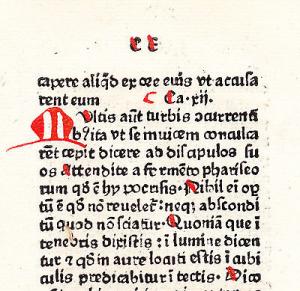 C E
capere aliq̄d ex ore eius vt accusa
rent eum C Ca. xij.
Multis aūt turbis ↄcurrentib⁹
ita vt se inuicem conculca
rēt cepit dicere ad discipulos su
os Attendite a fermēto phariseo
rum qđ ē hypocrisis. Nihil eī op̄
tū ē qđ nō reueleť: neqꝫ abscondi
tū quod nō sciatur. Quoniā que ī
tenebris dixistis: ī lumine dicen
tur ⁊ qđ in aure locuti estis ī cubi
culis predicabitur ī tectis. Dico